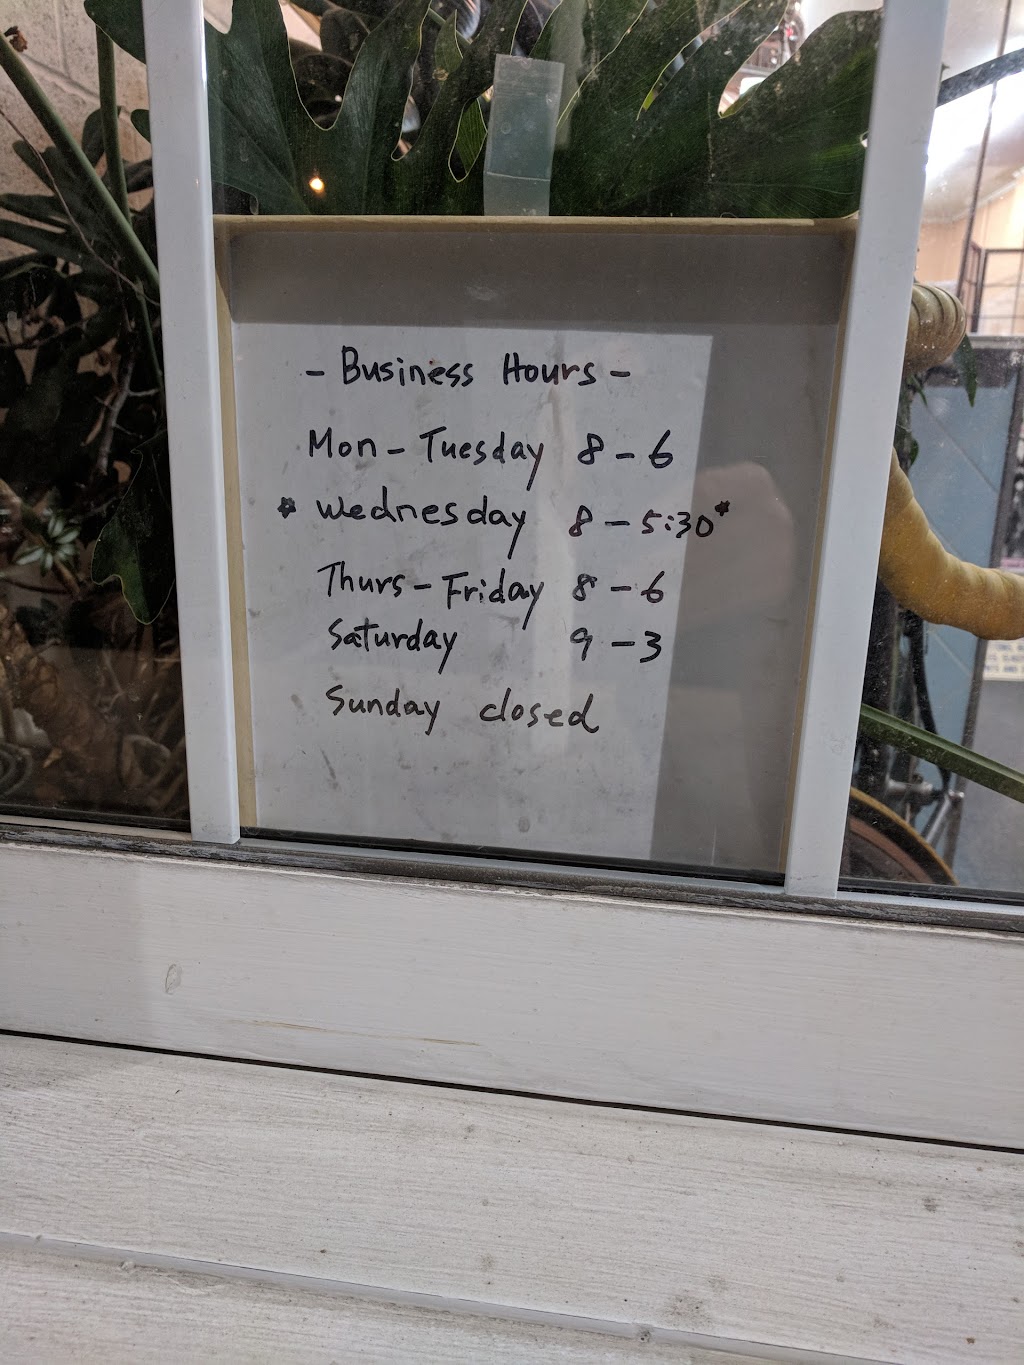 - Business Hours -
Mon - Tuesday 8 - 6
* Wednesday 8 - 5:30 *
Thurs - Friday 8 - 6
Saturday 9 - 3
Sunday closed